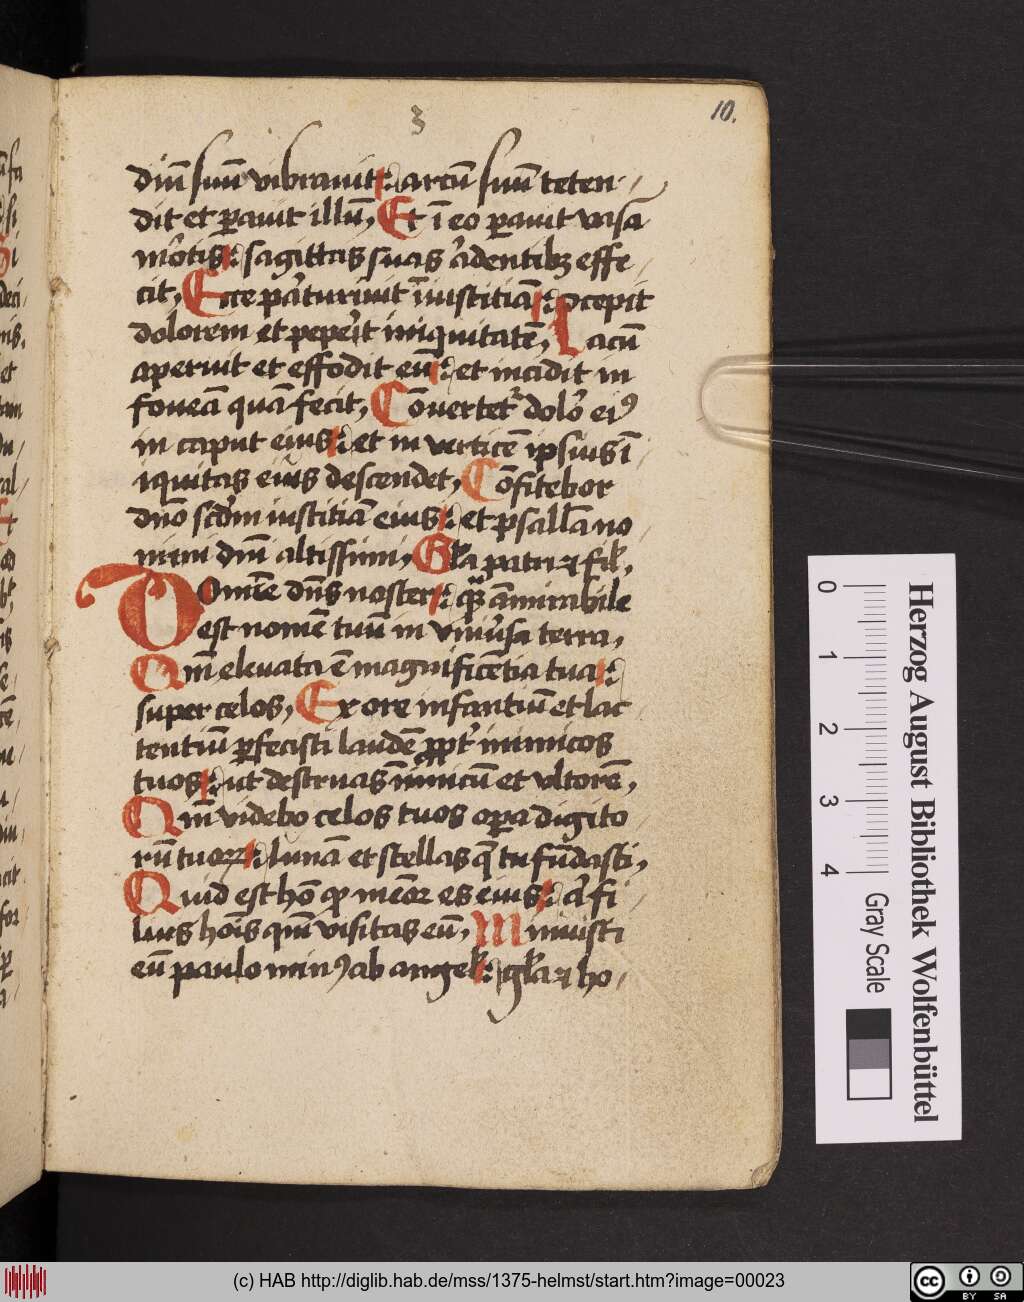 3
10.
diū suū vibrauit: arcū suū teten
dit et ꝑauit illū, Et ī eo ꝑauit vasa
mortis: sagittas suas ardentibꝫ effe
cit, Ecce parturiuit īiustitiā: ꝯcepit
dolorem et peperit iniquitatē, Lacū
aperuit et effodit eū: et incidit in
foueā quā fecit, Cōuertetr dolor eiꝰ
in caput eius: et in verticē ipsius ī
iquitas eius descendet, Cōfitebor
dño scdm iustitiā eius: et psallā no
mini dñi altissimi, Gła patri ⁊ fił,
Domīe dñs noster: qua admirabile
est nomē tuū in vniuersa terra,
Qm̄ eleuata ē magnificētia tua:
super celos, Ex ore infantiū et lac
tentiū ꝑfecisti laudē ꝓptr inimicos
tuos: ut destruas inimicū et vltorē,
Qm̄ videbo celos tuos opera digito
rū tuoꝝ: lunā et stellas q̄ tu fūdasti,
Quid est hō ꝙ memor es eius: aut fi
lius hoīs qm̄ visitas eū, Minuisti
eū paulo minꝰ ab angeł: gła ⁊ ho
0 1 2 3 4
Herzog August Bibliothek Wolfenbüttel
Gray Scale
(c) HAB http://diglib.hab.de/mss/1375-helmst/start.htm?image=00023
cc BY SA